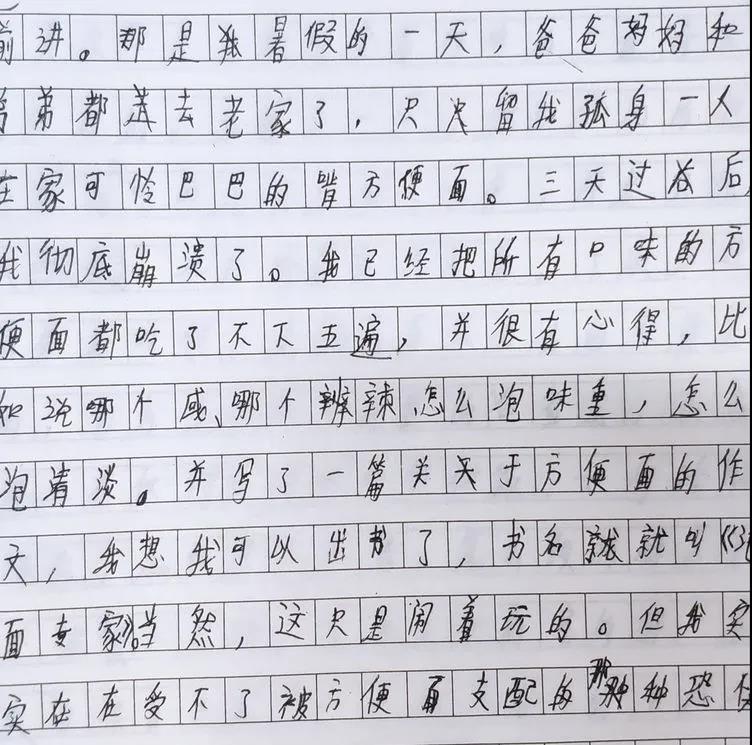 前讲。那是我暑假的一天，爸爸妈妈和
弟都送去老家了，只留我孤身一人
在家可怜巴巴的啃方便面。三天过后
我彻底崩溃了。我已经把所有口味的方
便面都吃了不下五遍，并很有心得，比
如说哪个咸、哪个辣、怎么泡味重，怎么
泡清淡。并写了一篇关于方便面的作
文，我想我可以出书了，书名就叫《泡
面专家》。当然，这只是闹着玩的。但我实
实在在受不了被方便面支配的那种恐